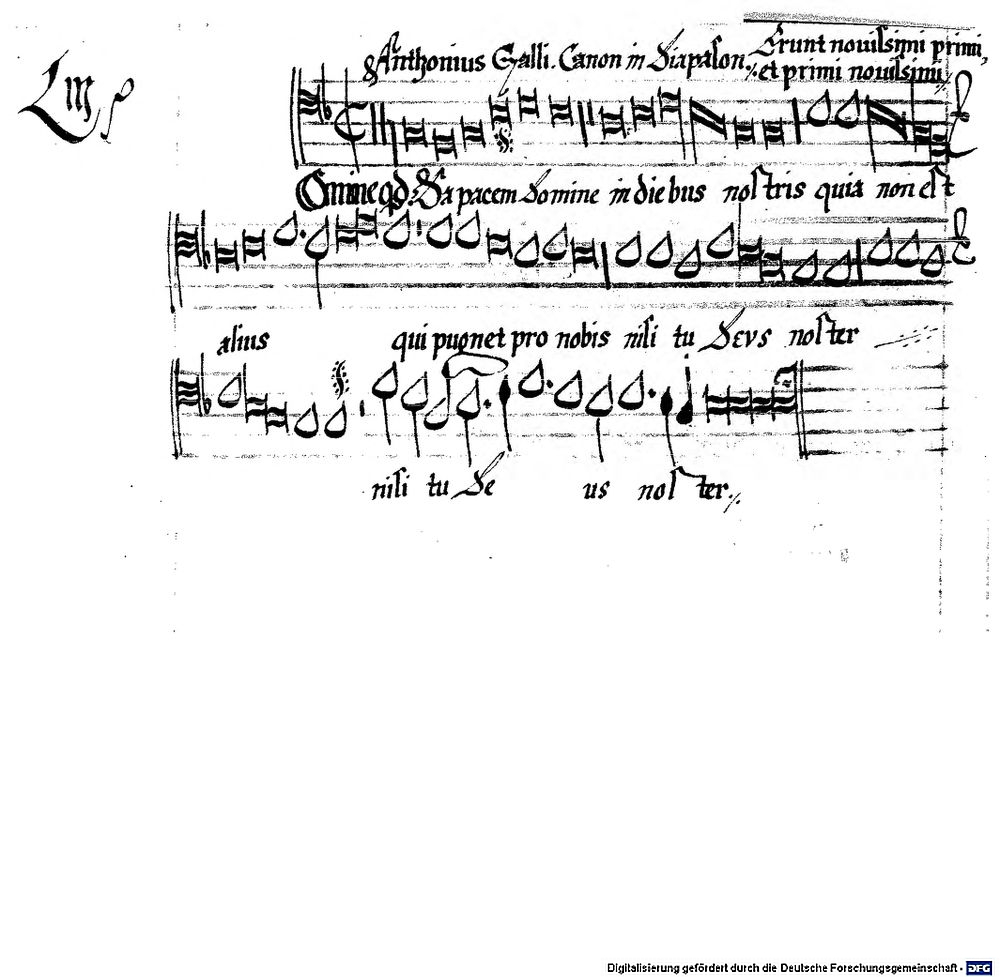 Anthonius Galli. Canon in Diapason. Erunt novissimi primi,
et primi novissimi
Da pacem Domine in diebus nostris quia non est
alius qui pugnet pro nobis nisi tu Deus noster
nisi tu De us nos ter
Digitalisierung gefördert durch die Deutsche Forschungsgemeinschaft - DFG